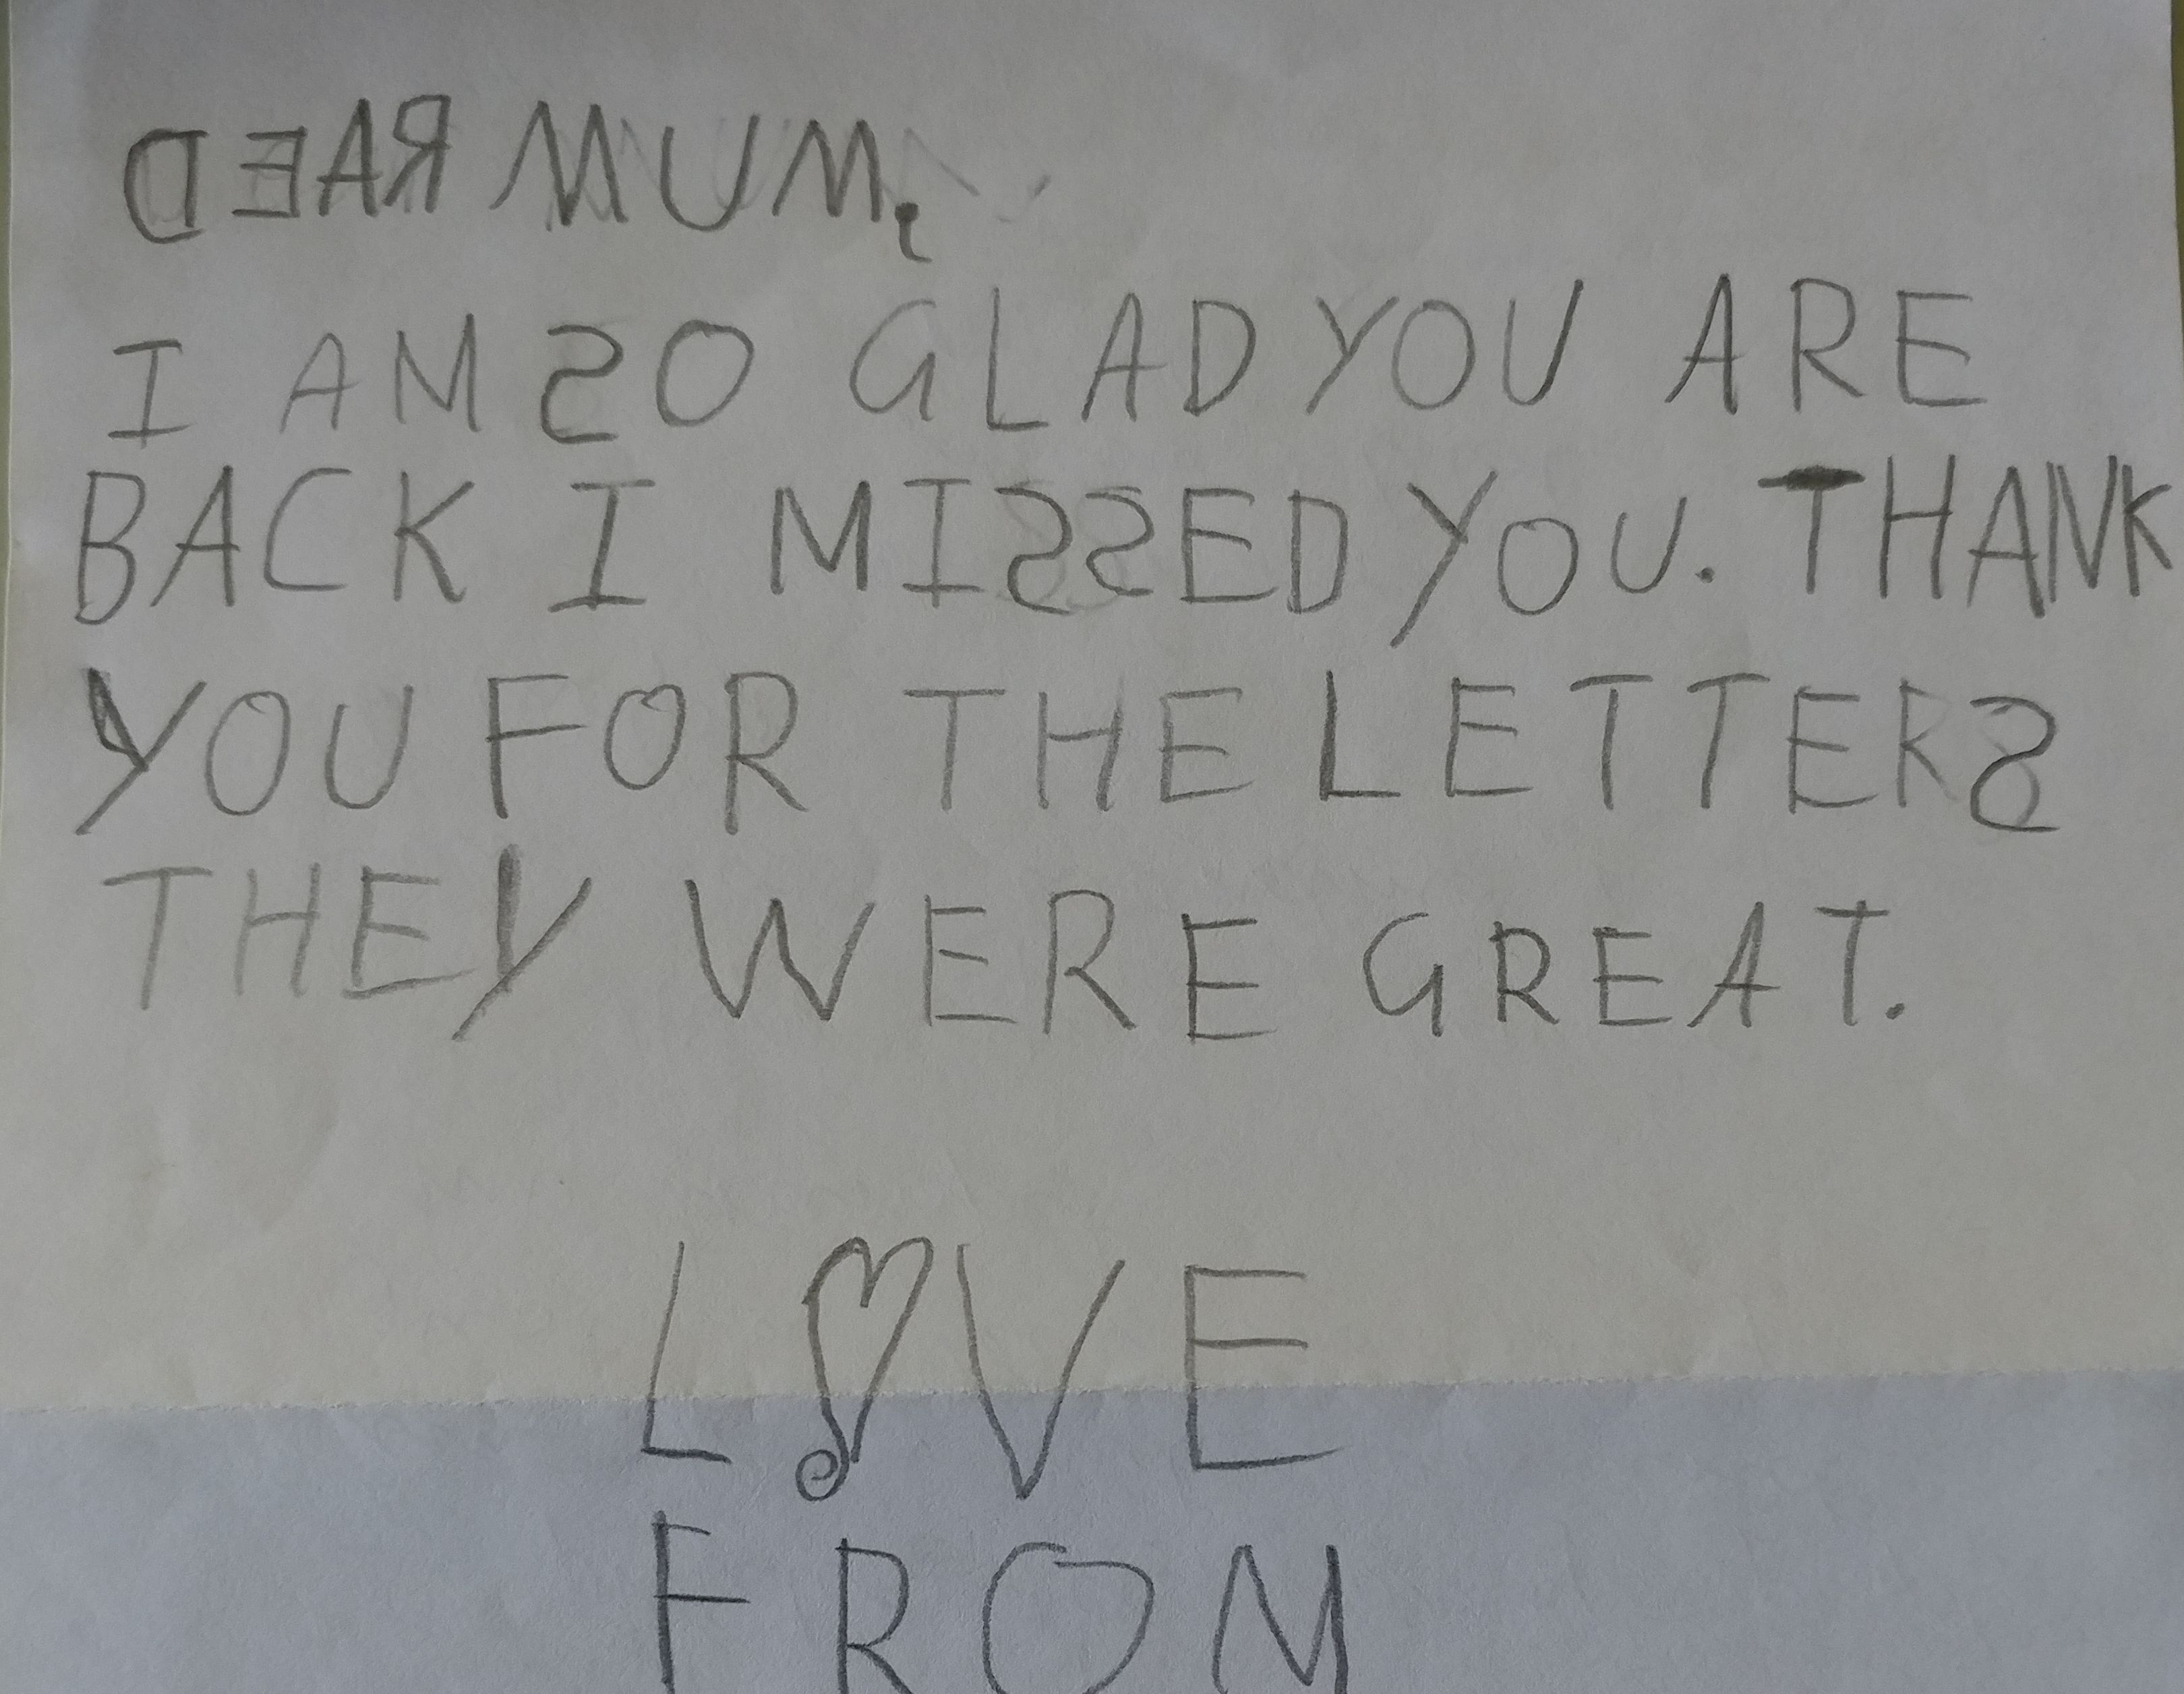 DEAR MUM,
I AM SO GLAD YOU ARE
BACK I MISSED YOU. THANK
YOU FOR THE LETTERS
THEY WERE GREAT.
LOVE
FROM